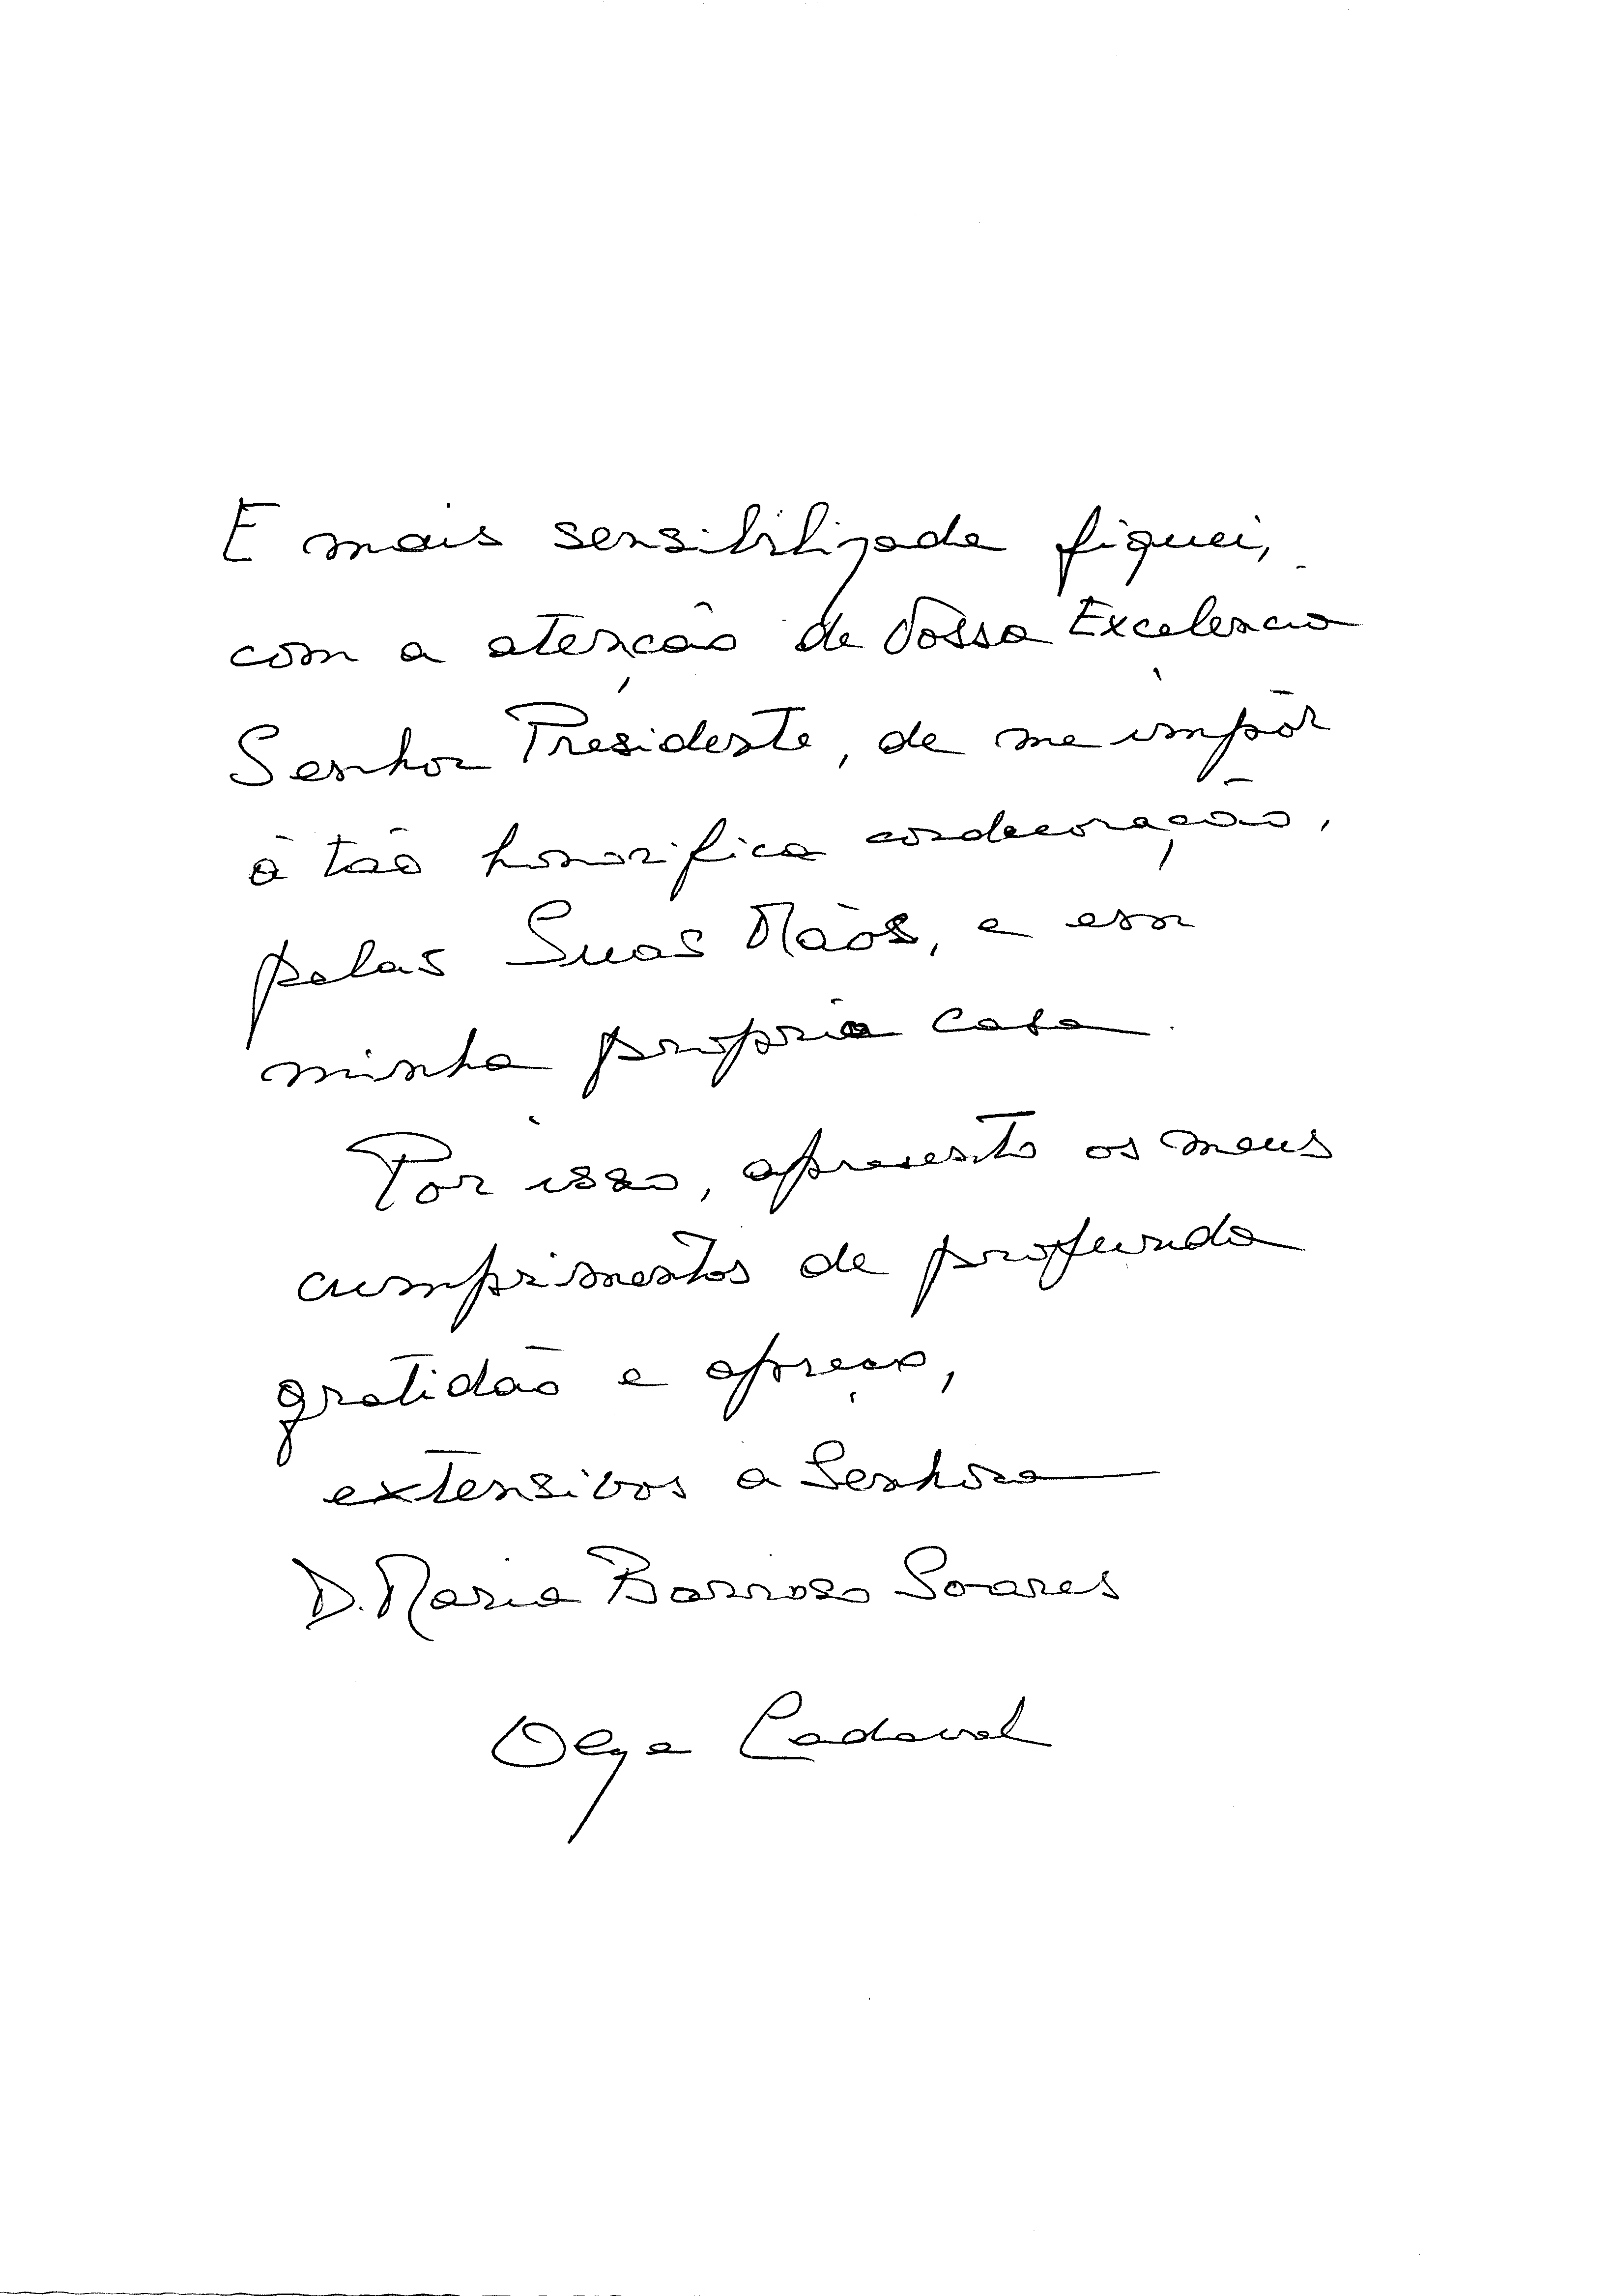 E mais sensibilizada fiquei,
com a atenção de Vossa Excelencia
Senhor Presidente, de me impôr
a tão honorifica condecoração,
pelas Suas Mãos, e em
minha propria casa.
Por isso, apresento os meus
cumprimentos de profunda
gratidão e apreço,
extensivos a Senhora
D. Maria Barroso Soares
Olga Cadaval